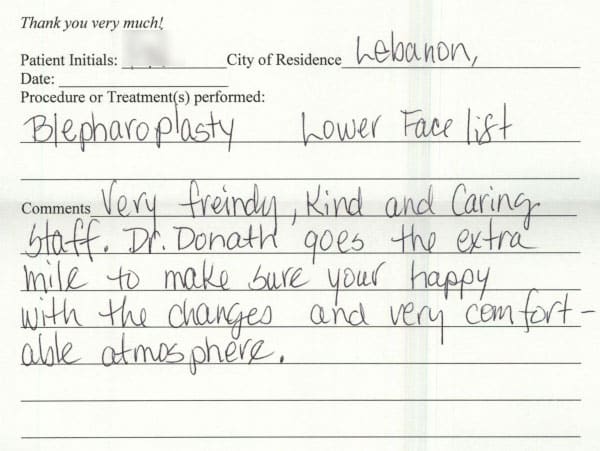 Thank you very much!
Patient Initials: City of Residence Lebanon,
Date:
Procedure or Treatment(s) performed:
Blepharoplasty Lower Face lift
Comments Very freindy, Kind and Caring
staff. Dr. Donath goes the extra
mile to make sure your happy
with the changes and very comfort-
able atmosphere.